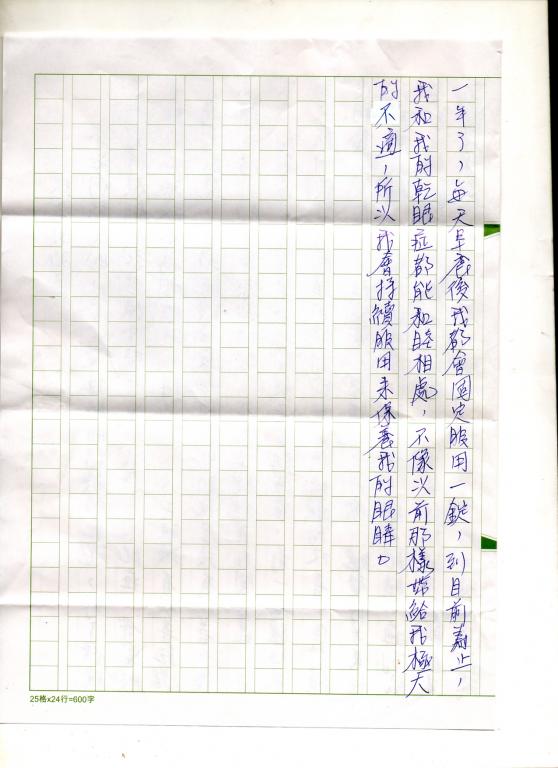 一年了，每天早餐後我都會固定服用一錠，到目前為止，
我和我的乾眼症都能和睦相處，不像以前那樣帶給我極大
的不適，所以我會持續服用來保養我的眼睛。
25格x24行=600字